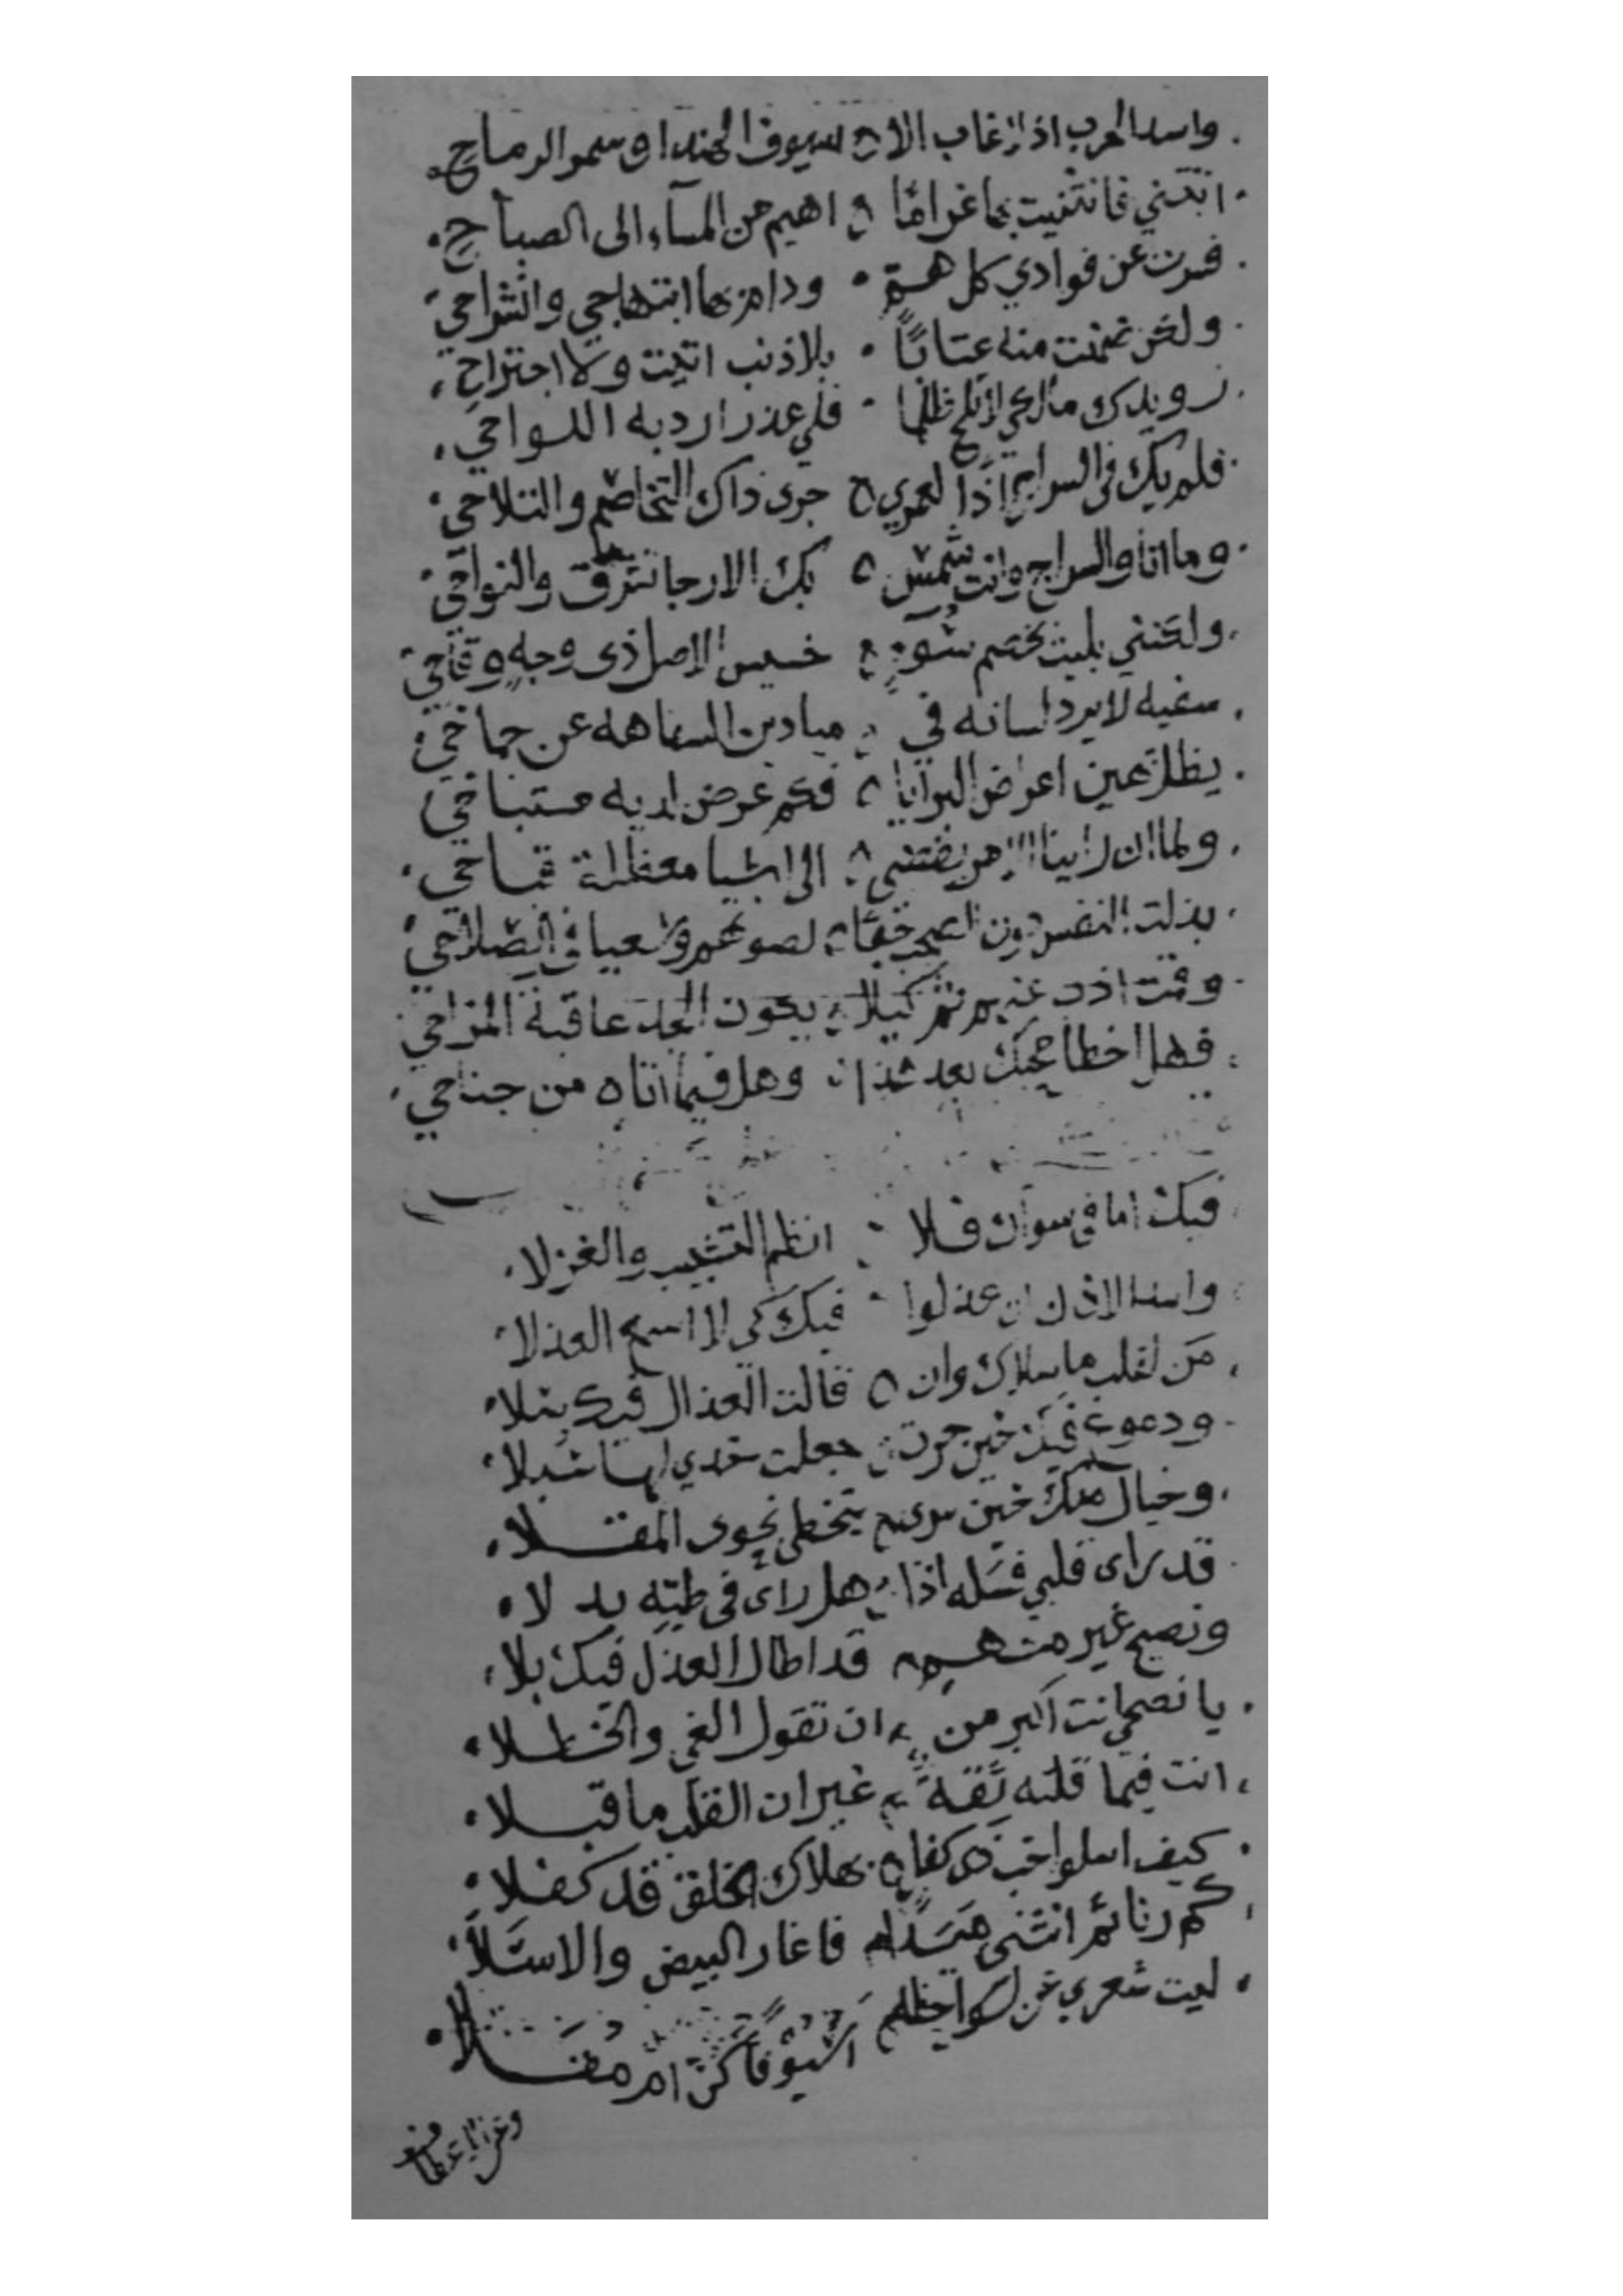 واسد الحرب اذ لا غاب الا سيوف الهند او سمر الرماح
اتتني فانتنيت بها غراما اهيم من المسآء الى الصباح
فسرت عن فوادي كل هم ودام بها ابتهاجي وانشراحي
ولكن ضمنت منه عتابًا بلا ذنب اتيت ولا اجتراح
رويدك مالكي لا تلح ظلما فلي عذر ارد به اللواحي
فلم يك في السراج اذًا لعمري جرى ذاك التخاصم والتلاحي
وما انا والسراج وانت شمس بك الارجا تشرق والنواحي
ولكنني بليت بخصم سوءٍ خسيس الاصل ذى وجهٍ وقاحي
سفيه لا يرد لسانه في ميادين السفاهه عن جماحي
يظل يهين اعراض البرايا فكم عرض لديه مستباحي
ولما ان راينا الامر يفضي الى اشيا معظلة قباحي
بذلت النفس دون حقا لصونهم وسعيا في الصلاحي
وقمت اذب عنهم ثم كيلا يكون الجد عاقبة المزاحي
فهل اخطا محبك بعد هذا وهل فيما اتاه من جناحي
فيك اما في سواك فلا انظم التشبيب والغزلا
واسد الاذن ان عذلوا فيك كى لا اسمع العذلا
مَن لقلب ما سلاك وان قالت العذال فيك سلا
ودموع فيك حين جرت جعلت خدي لها سبلا
وخيال منك حين سرى يتخطى نحوى المقلا
قد راى قلبي فسَله اذا هل راى في طيّه بدلا
ونصيح غير متهم قد اطال العذل فيك بلا
يا نصيحي انت اكبر من ان تقول الغي والخطلا
انت فيما قلته ثقةً غير ان القلب ما قبلا
كيف اسلوا حب ذى كفل بهلاك الخلق قد كفلا
كم رنا ثم انثنى مَيَدًا فاغار البيض والاسَلا
ليت شعري عن لواحظه اسُيُوفًا كنّ ام مُقَلا